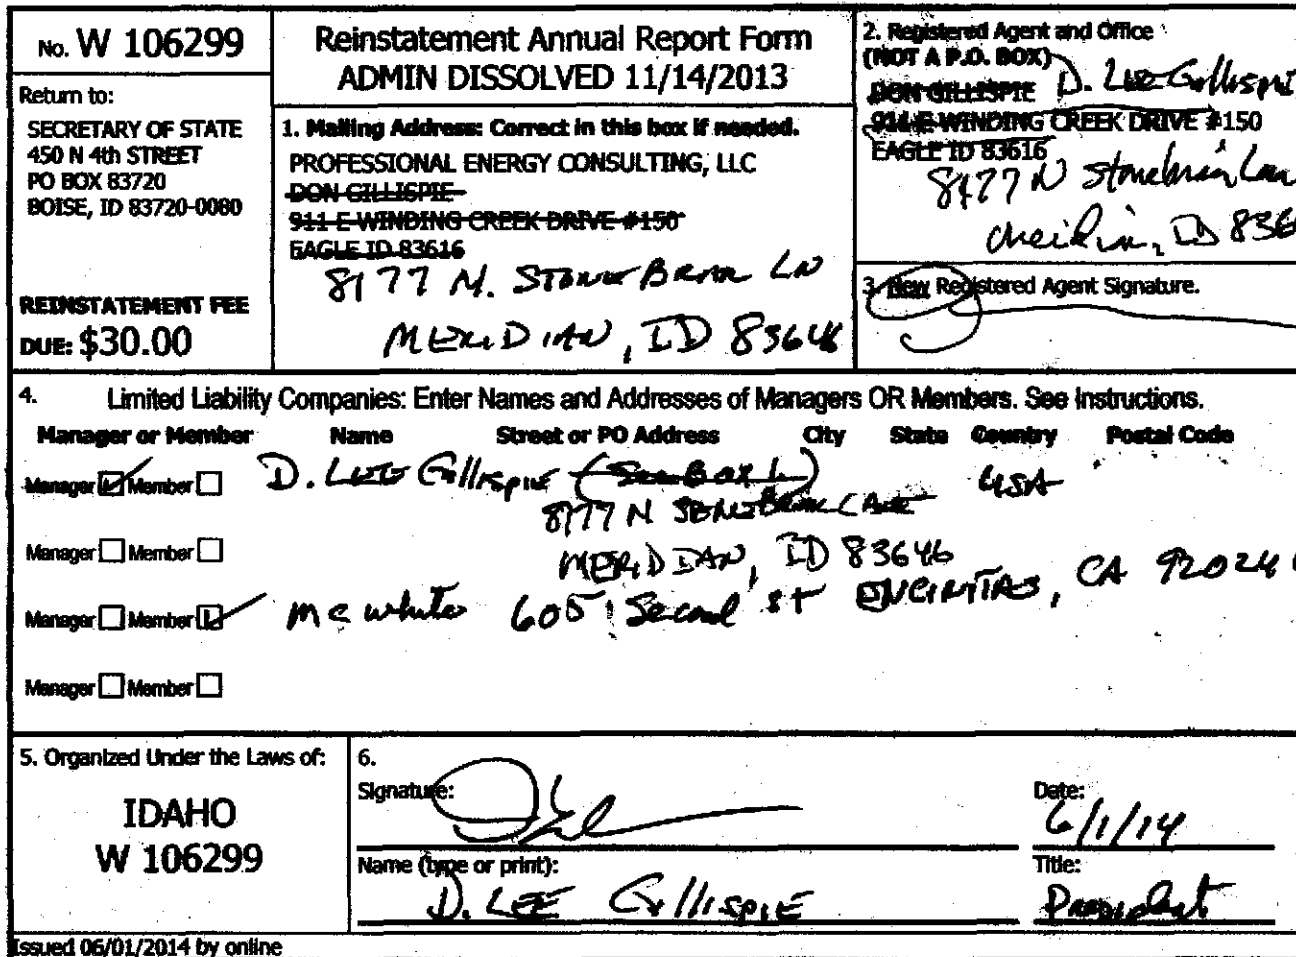 No. W 106299
Return to:
SECRETARY OF STATE
450 N 4th STREET
PO BOX 83720
BOISE, ID 83720-0080
REINSTATEMENT FEE
DUE: $30.00
Reinstatement Annual Report Form
ADMIN DISSOLVED 11/14/2013
1. Mailing Address: Correct in this box if needed.
PROFESSIONAL ENERGY CONSULTING, LLC
DON GILLISPIE
911 E WINDING CREEK DRIVE #150
EAGLE ID 83616
8177 N. STONE BRIAR LN
MERIDIAN, ID 83646
2. Registered Agent and Office
(NOT A P.O. BOX)
DON GILLISPIE D. LEE Gillispie
911 E WINDING CREEK DRIVE #150
EAGLE ID 83616
8177 N Stonebriar Lane
Meridian, ID 836
3. New Registered Agent Signature.
4. Limited Liability Companies: Enter Names and Addresses of Managers OR Members. See Instructions.
Manager or Member Name Street or PO Address City State Country Postal Code
Manager Member D. LEE Gillispie (See Box 1) USA
8177 N
Manager Member MERIDIAN, ID 83646
Manager Member Mc White 605 Second St ENCINITAS, CA 92024
Manager Member
5. Organized Under the Laws of:
IDAHO
W 106299
6.
Signature:
Date:
6/1/14
Name (type or print):
D. LEE Gillispie
Title:
President
Issued 06/01/2014 by online